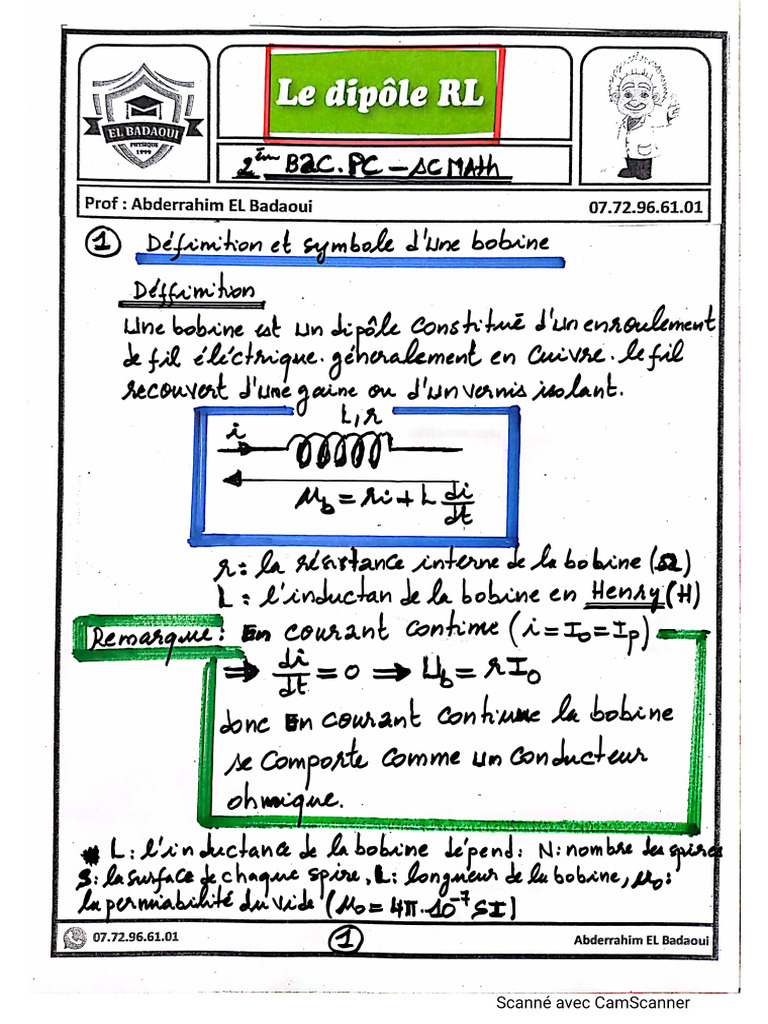 Le dipôle RL
EL BADAOUI
PHYSIQUE
1999
2ème BAC.PC - SC MAth
Prof : Abderrahim EL Badaoui 07.72.96.61.01
1 Définition et symbole d'une bobine
Déffinition
Une bobine est un dipôle constitué d'un enroulement
de fil éléctrique. généralement en cuivre. le fil
recouvert d'une gaine ou d'un vernis isolant.
L,r
i
u_b = ri + L di/dt
r: la résistance interne de la bobine (Ω)
L: l'inductan de la bobine en Henry (H)
Remarque: En courant continue (i = I₀ = Ip)
⇒ di/dt = 0 ⇒ U_b = rI₀
donc En courant continue la bobine
se comporte comme un conducteur
ohmique.
* L: l'inductance de la bobine dépend: N: nombre des spires
S: la surface de chaque spire, L: longueur de la bobine, μ₀:
la permiabilité du vide (μ₀ = 4π.10⁻⁷ SI)
07.72.96.61.01 1 Abderrahim EL Badaoui
Scanné avec CamScanner